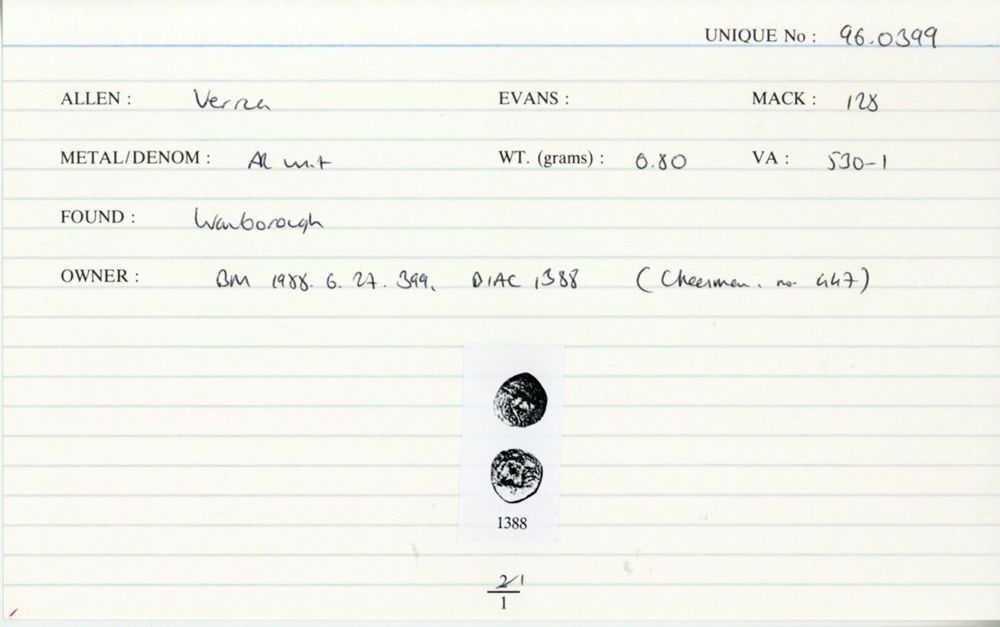 UNIQUE No : 96.0399
ALLEN : Verica EVANS : MACK : 128
METAL/DENOM : AR unit WT. (grams) : 0.80 VA : 530-1
FOUND : Wanborough
OWNER : BM 1988. 6. 27. 399. BIAC 1388 (Cheesman. no. 447)
1388
21
1